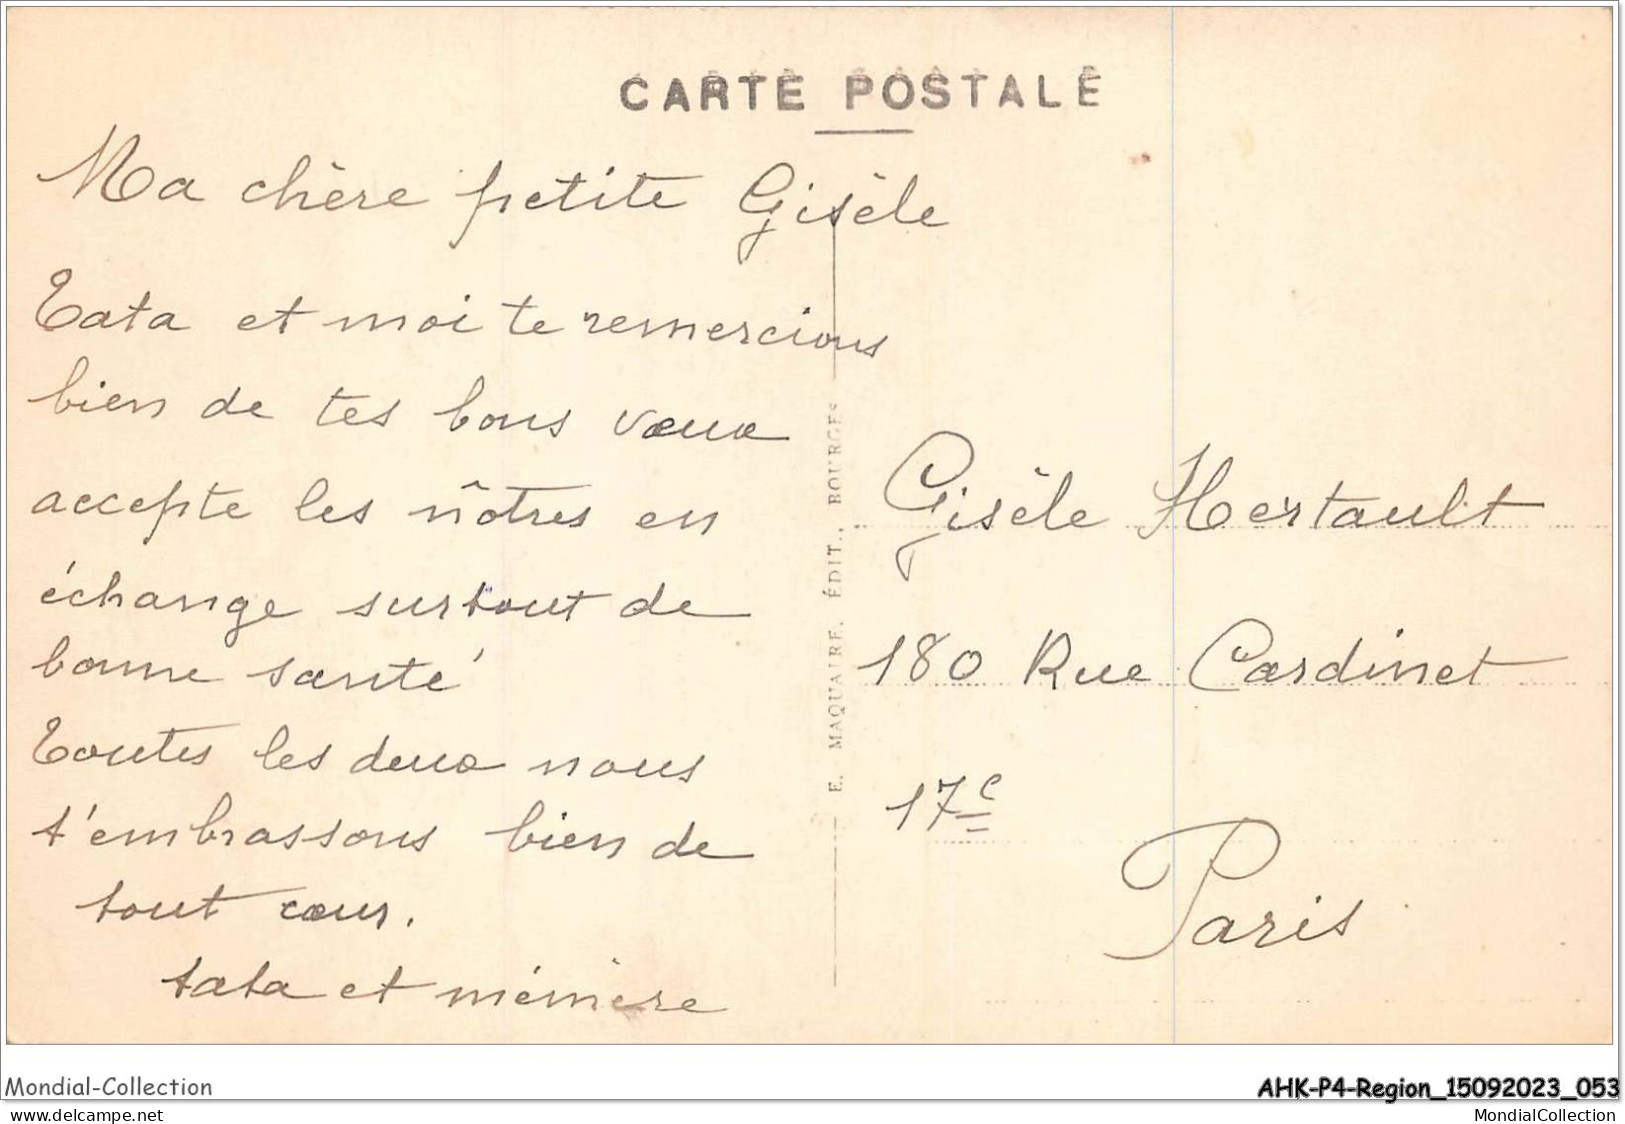 CARTE POSTALE
Ma chère petite Gisèle
Tata et moi te remercions
bien de tes bons vœux
accepte les nôtres en
échange surtout de
bonne santé
Toutes les deux nous
t'embrassons bien de
tout cœur.
tata et mémère
E. MAQUAIRE. ÉDIT., BOURGES
Gisèle Hertault
180 Rue Cardinet
17e
Paris
Mondial-Collection
AHK-P4-Region_15092023_053
www.delcampe.net
MondialCollection